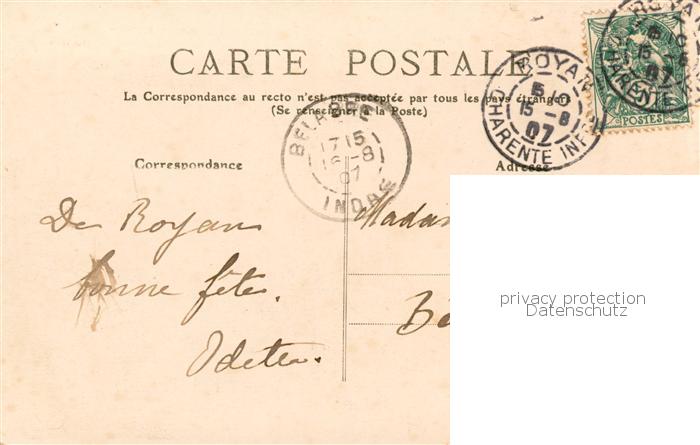 CARTE POSTALE
La Correspondance au recto n'est pas acceptée par tous les pays étrangers
(Se renseigner à la Poste)
ROYAN
5
15 -8
07
CHARENTE INF
ROYAN
07
POSTES
BELABRE
17 15
16 -8
07
INDRE
Correspondance
Adresse
De Royan
bonne fête.
Madam
Bé
privacy protection
Datenschutz